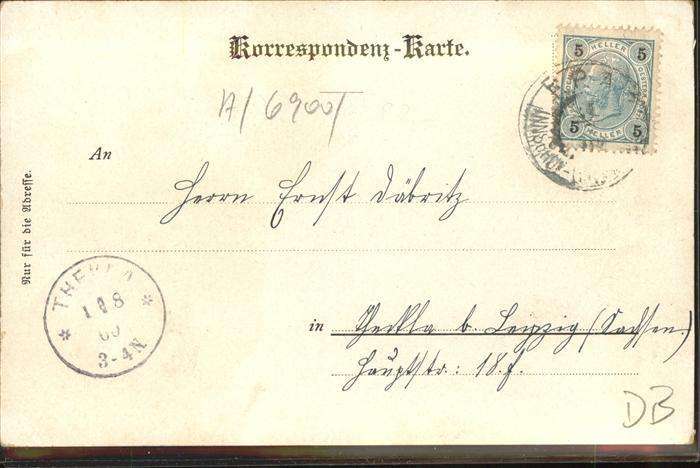 Korrespondenz-Karte.
5 HELLER 5
5 HELLER 5
A/6900
An
Herrn Ernst Däbritz
Nur für die Adresse.
THEKLA
1 8
3-4N
in Theckla b. Leipzig (Sachsen)
Hauptstr: 18.f.
DB